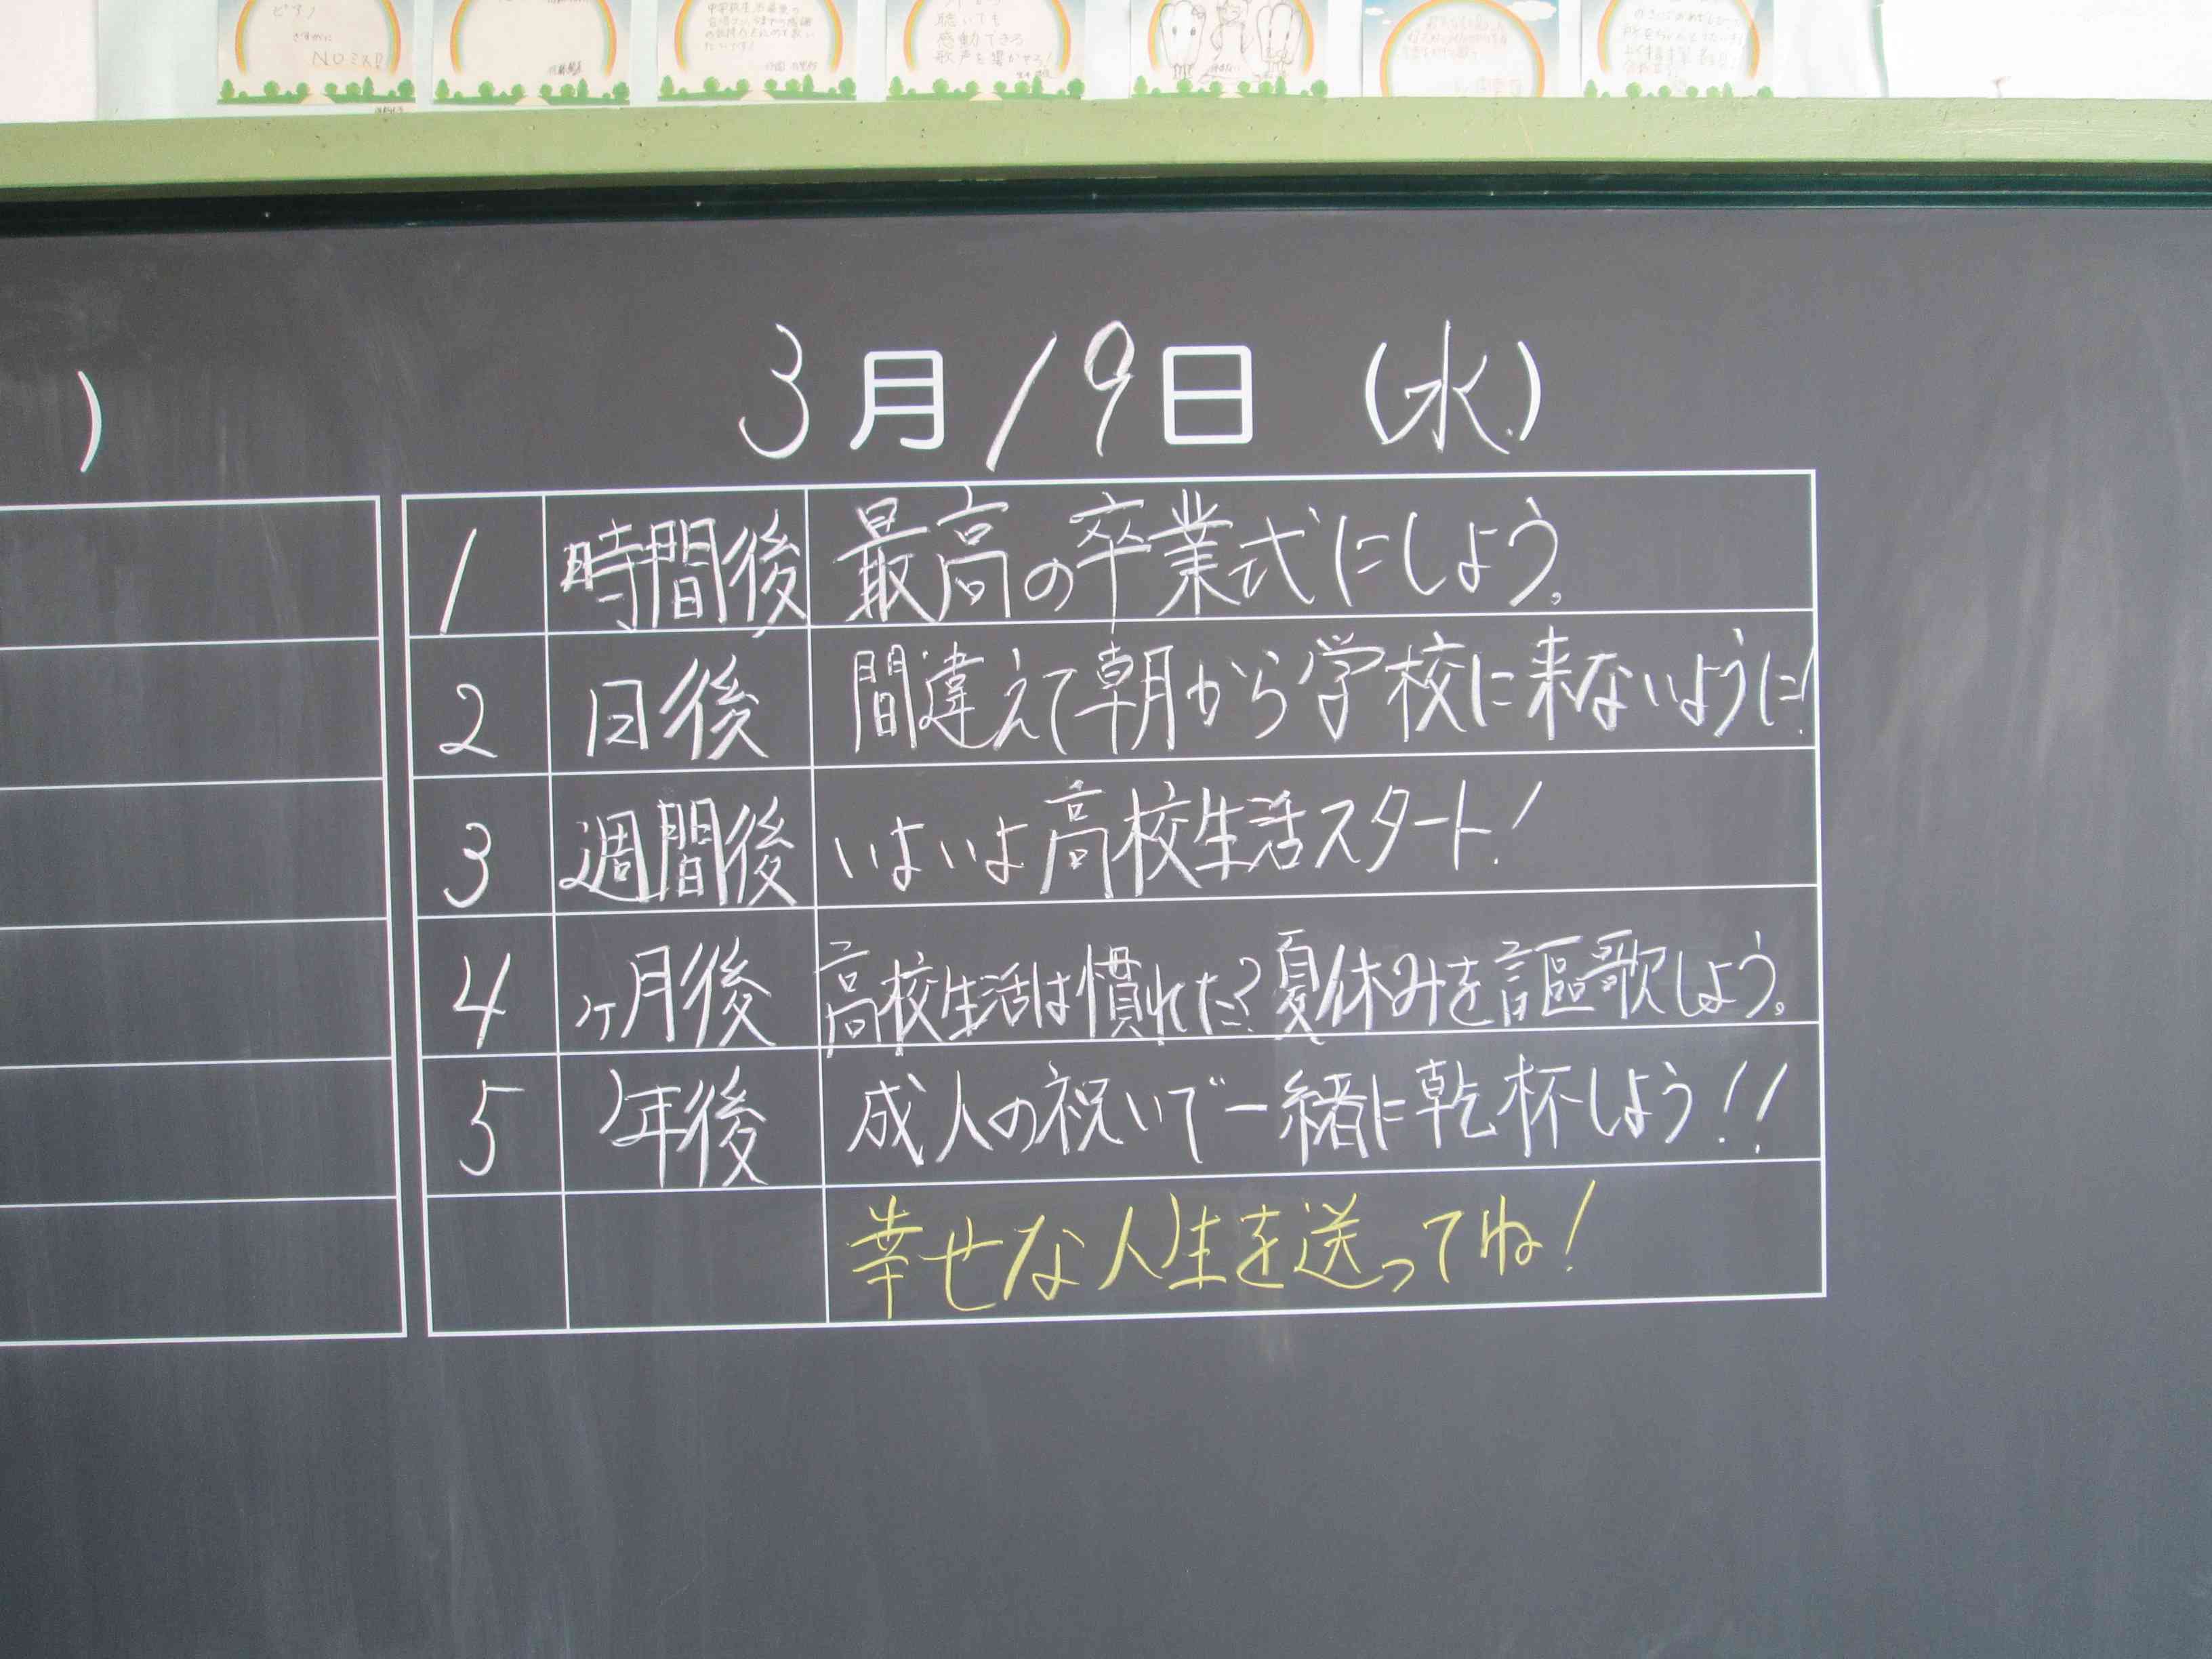 NOミス!!
聴いても
感動できる
歌声を響かせろ!
)
3月19日 (水)
1 時間後 最高の卒業式にしよう。
2 日後 間違えて朝から学校に来ないように!
3 週間後 いよいよ高校生活スタート!
4 ヶ月後 高校生活は慣れた?夏休みを謳歌しよう。
5 年後 成人の祝いで一緒に乾杯しよう!!
幸せな人生を送ってね!